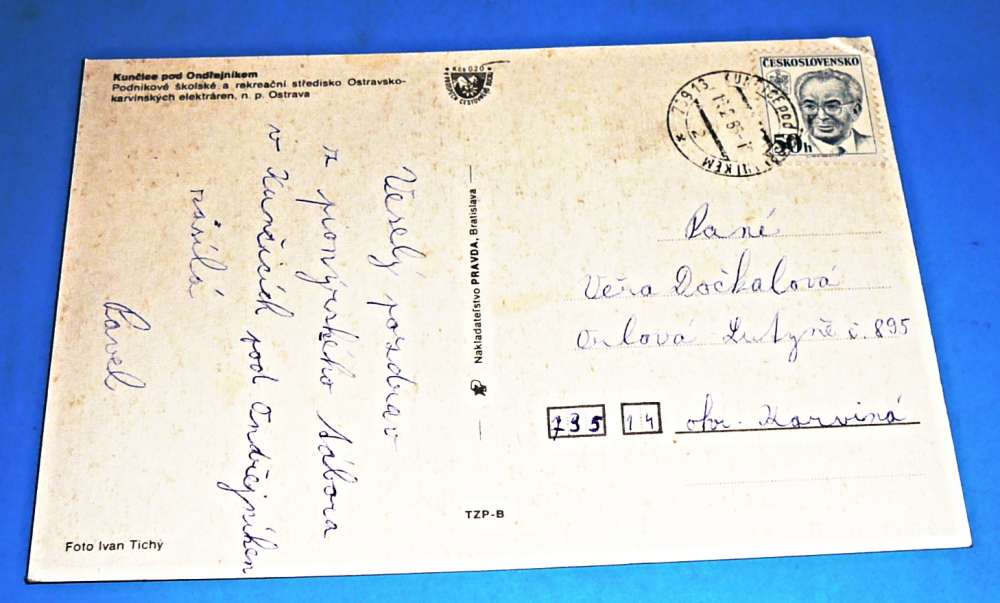 Kunčice pod Ondřejníkem
Podnikové školské a rekreační středisko Ostravsko-
karvinských elektráren, n. p. Ostrava
Kčs 0,20
ČESKOSLOVENSKO
50h
739 13 KUNČICE pod ONDŘEJNÍKEM
2
Veselý pozdrav
z pionýrského tábora
v Kunčicích pod Ondřejníkem
zásílá
Pavel
Nakladateľstvo PRAVDA, Bratislava
Paní
Věra Dočkalová
Orlová Lutyně č. 895
735 14 okr. Karviná
TZP-B
Foto Ivan Tichý